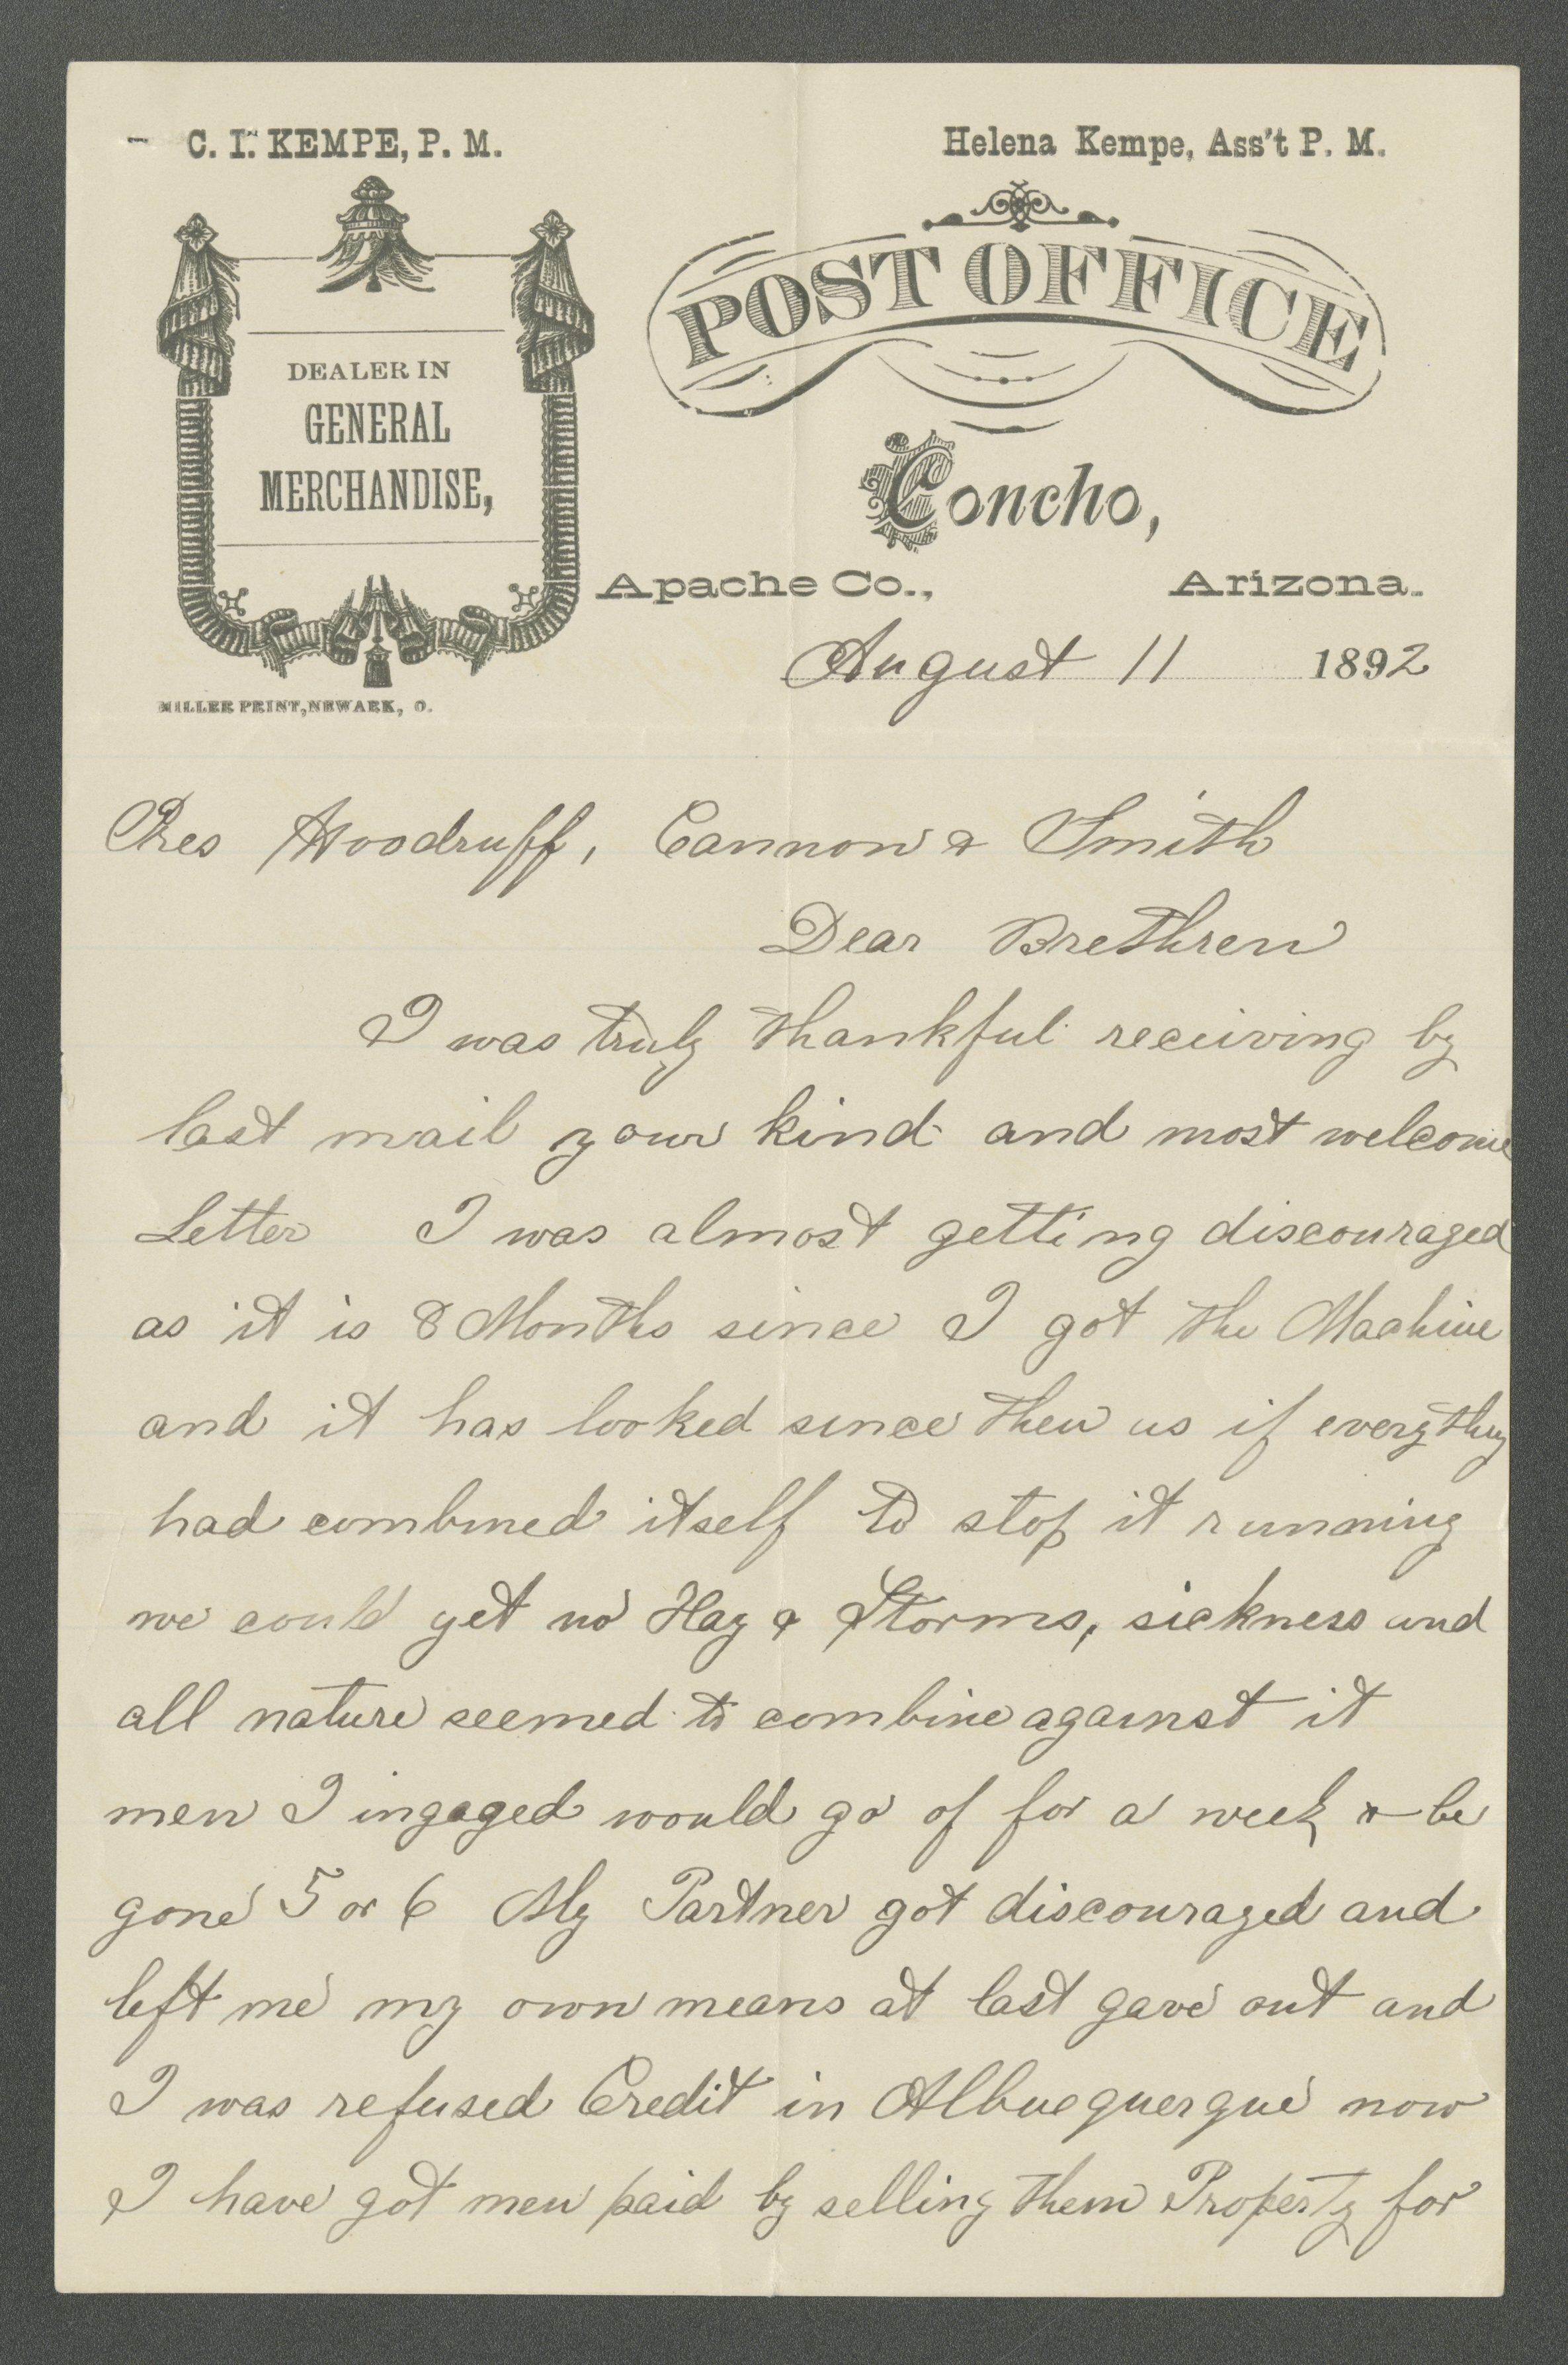 C. I. KEMPE, P. M.
Helena Kempe, Ass't P. M.
DEALER IN
GENERAL
MERCHANDISE,
MILLER PRINT, NEWARK, O.
POST OFFICE
Concho,
Apache Co., Arizona.
August 11 1892
Pres Woodruff, Cannon & Smith
Dear Brethren
I was truly thankful receiving by
last mail your kind and most welcome
Letter I was almost getting discouraged
as it is 8 Months since I got the Machine
and it has looked since then us if everything
had combined itself to stop it running
we could get no Hay & Storms, sickness and
all nature seemed to combine against it
men I ingaged would go of for a week & be
gone 5 or 6 My Partner got discouraged and
left me my own means at last gave out and
I was refused Credit in Albuequerque now
I have got men paid by selling them Property for